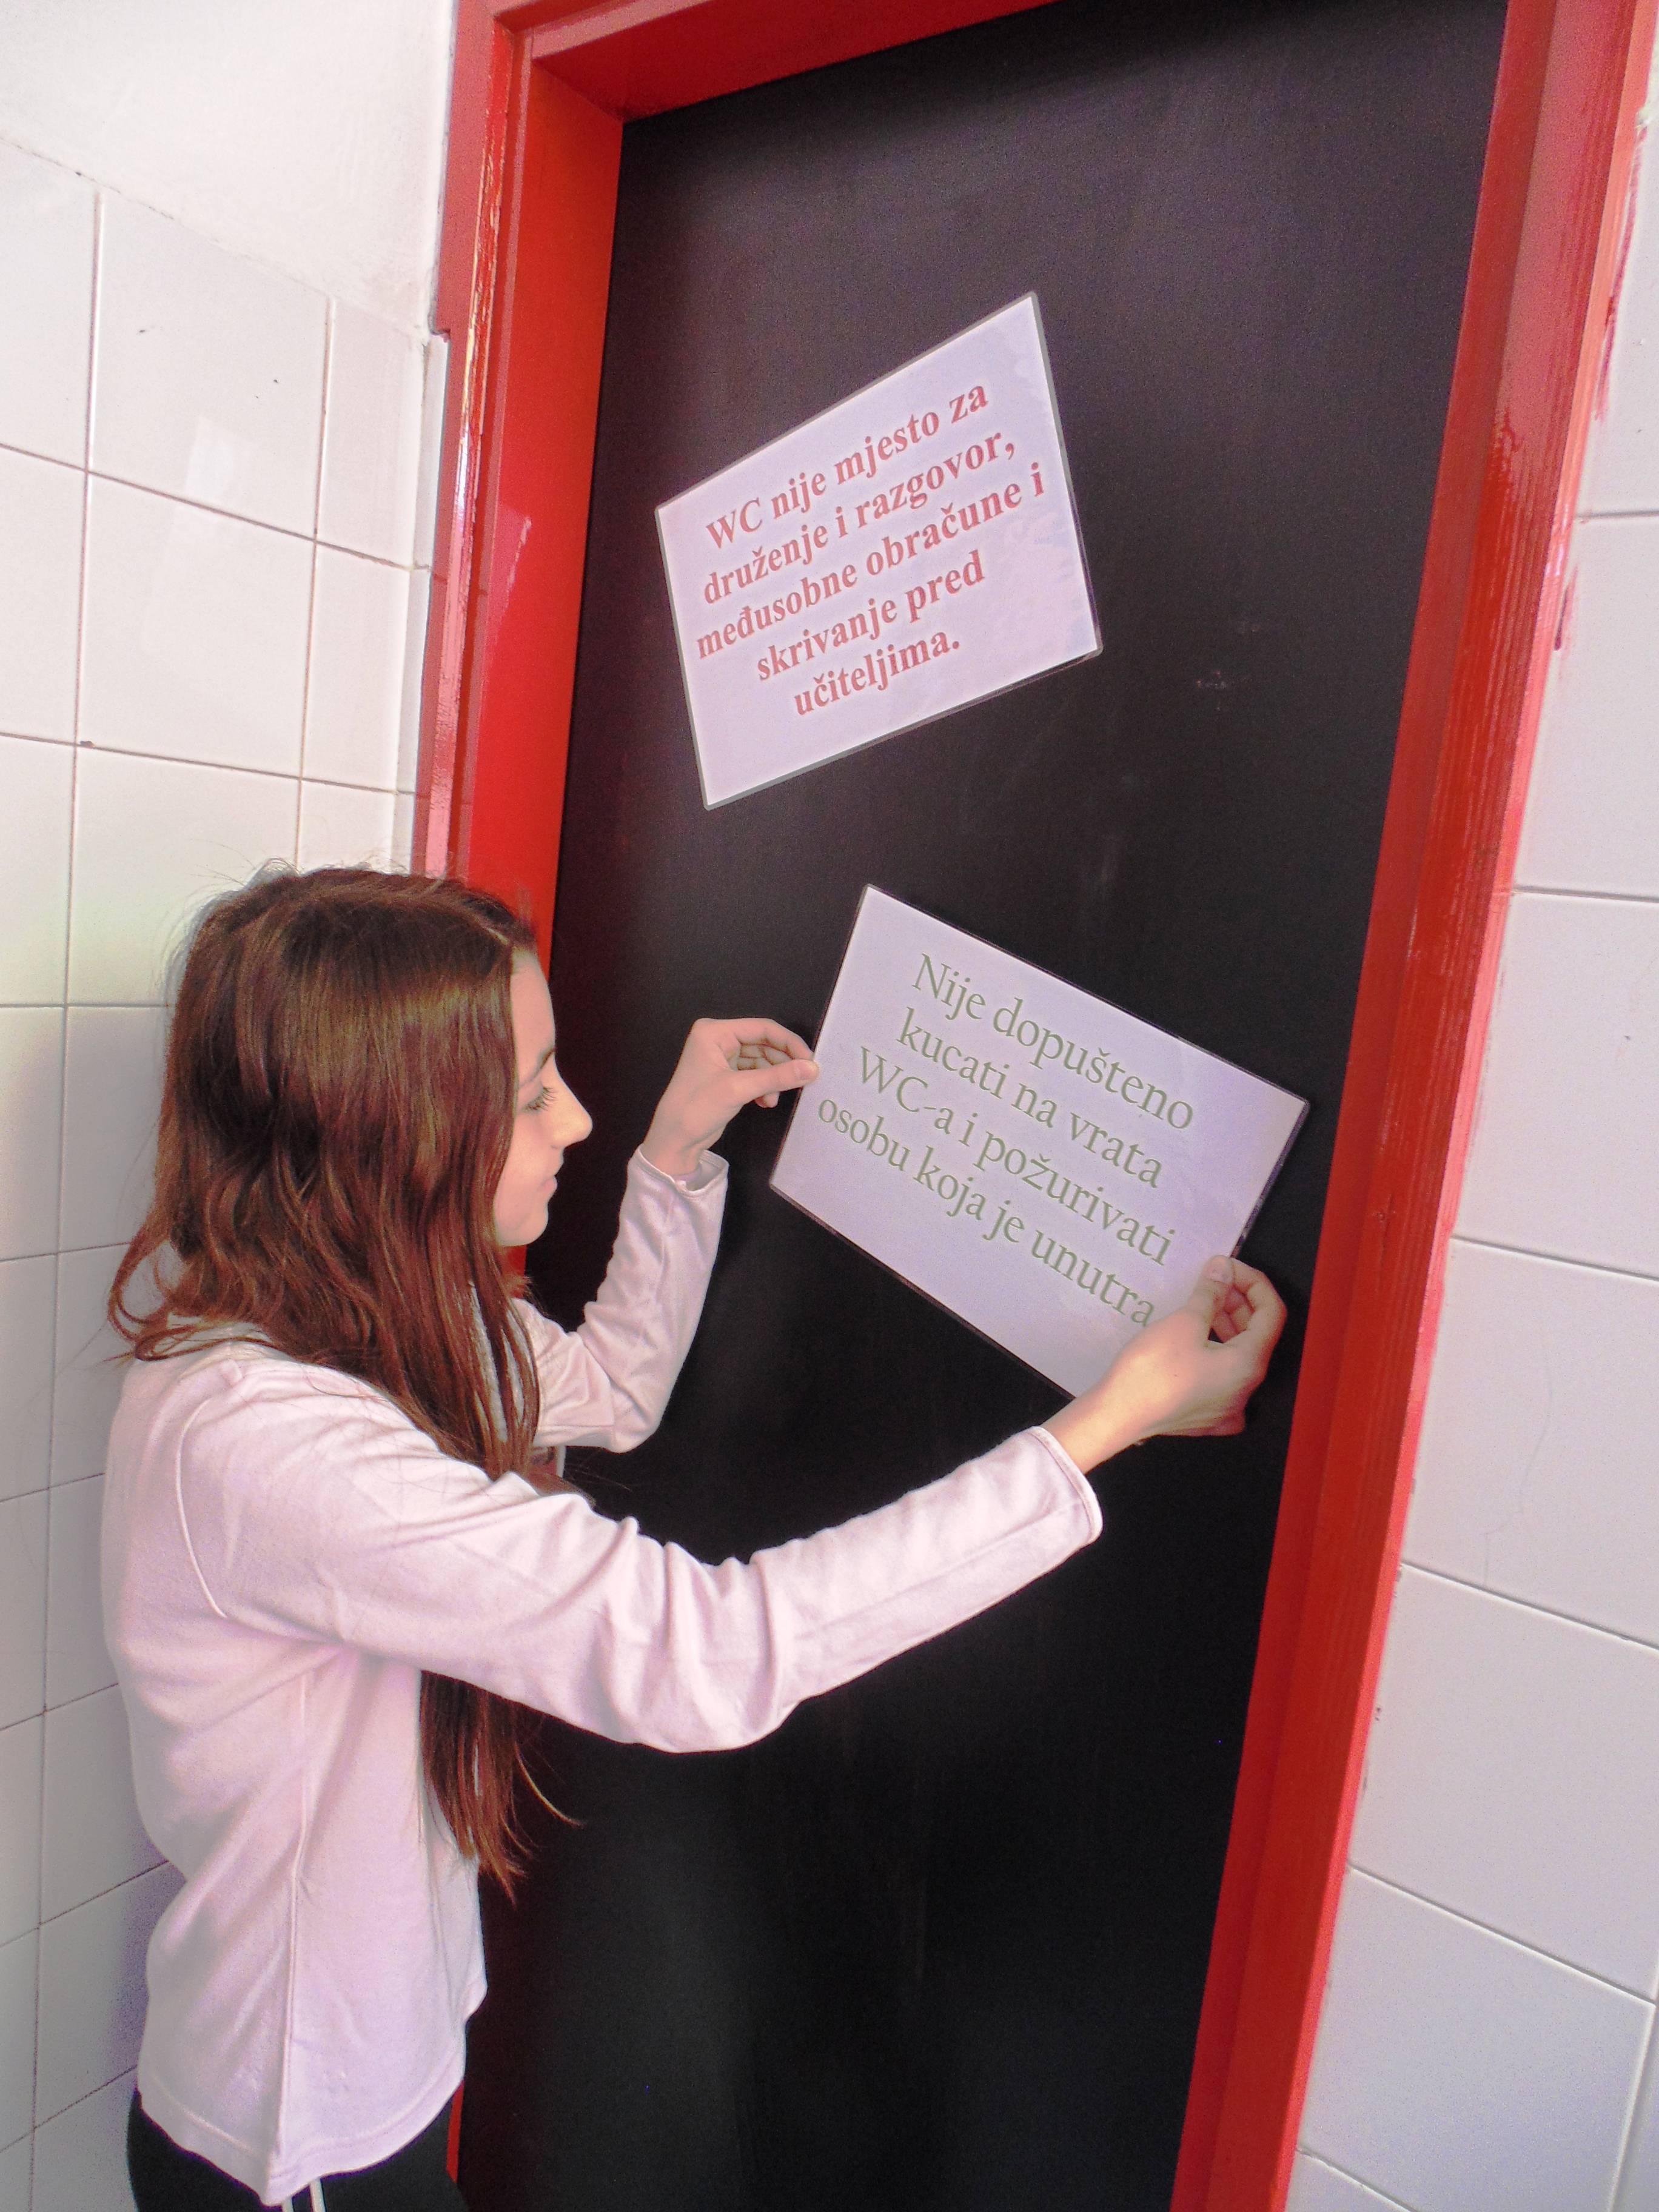 WC nije mjesto za
druženje i razgovor,
međusobne obračune i
skrivanje pred
učiteljima.
Nije dopušteno
kucati na vrata
WC-a i požurivati
osobu koja je unutra